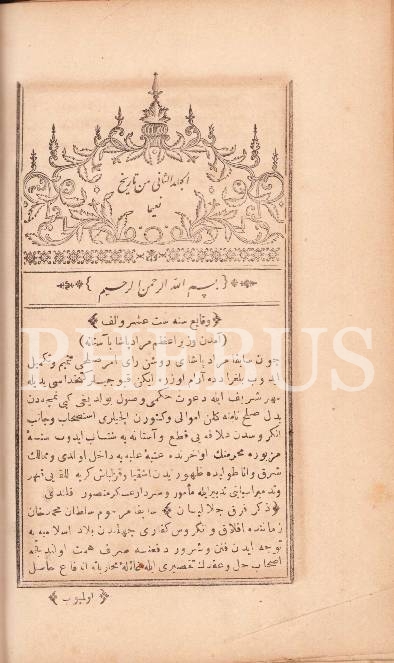 الجلد الثانى من تاريخ
نعيما
بسم الله الرحمن الرحيم
وقايع سنه ست عشر والف
(آمدن وزير اعظم مراد پاشا بآستانه)
چون سابقا مراد پاشاى روشن راى امر صلحى تتميم وتكميل
ايدوب بلغرادده آرام اوزره ايكن قپوجيلر كتخداسى يديله
مهر شريف ايله دعوت حكمى وصول بولديغى كبى
بدل صلح نامه كلان اموالى وكتورن ايلچيلرى استصحاب وجانب
انكروسدن علاقه يى قطع و آستانه يه شتاب ايدوب سنۀ
مزبوره محرمنك اواخرنده عتبۀ عليه يه داخل اولدى وممالك
شرق واناطوليده ظهور ايدن اشقيا وقزلباش
تدبيريله مأمور وسردار عسكر منصور قلندى
ذكر فرق جلاليان سابقا مرحوم سلطان محمد خان
زماننده افلاق و انكروس كفارى جهتندن بلاد اسلاميه يه
توجه ايدن فتن وشرور دفعنه صرف همت اولنديغچه
اصحاب حل وعقدك تقصيرى ايله
اولميوب
PHEBUS